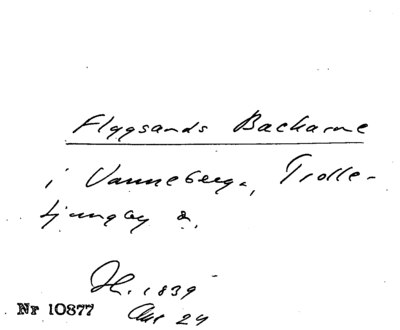 Flygsands Backarne
i Vanneberga, Trolle-
ljungby s.
H. 1839
Akt 24
Nr 10877